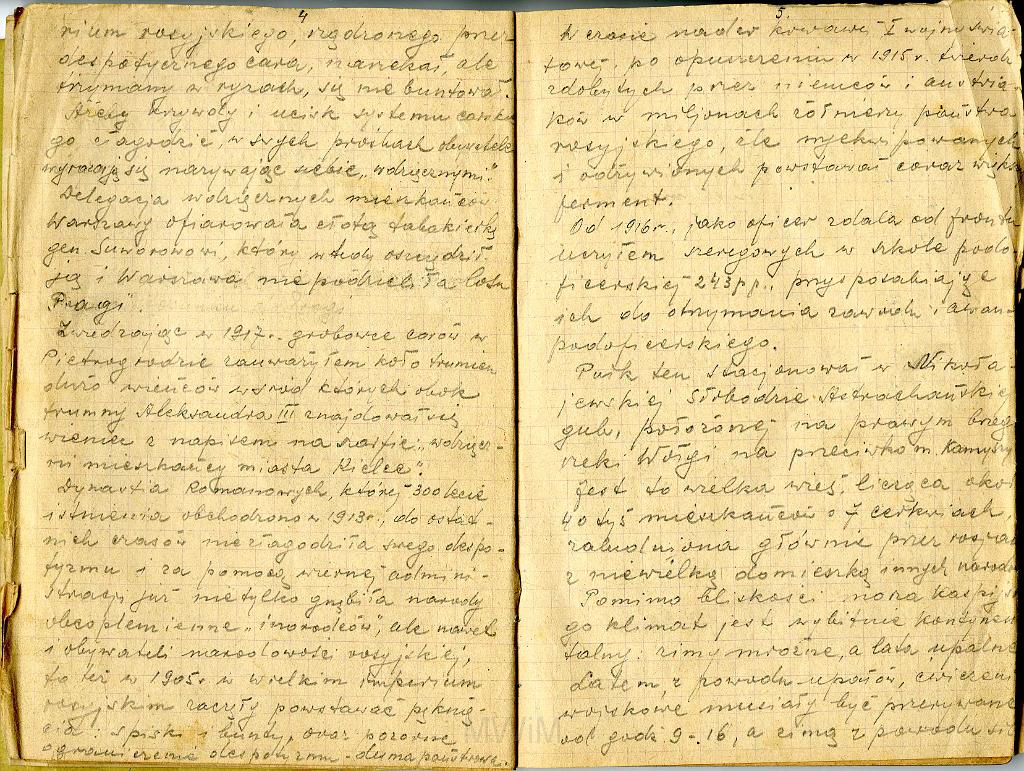 4
rium rosyjskiego, rządzonego przez
despotycznego cara, narzekał, ale
trzymany w ryzach, się nie buntował.
Ażeby krzywdy i ucisk systemu carskie
go łagodzić, w swych prośbach obywatele
wyrażają się nazywając siebie "wdzięcznymi".
Delegacja wdzięcznych mieszkańców
Warszawy ofiarowała złotą tabakierkę
gen. Suworowowi, który wtedy oszczędził
ją i Warszawa nie podzieliła losu
Pragi.
Zwiedzając w 1917 r. grobowce carów w
Pietrogrodzie zauważyłem koło trumien
dużo wieńców wśród których obok
trumny Aleksandra III znajdował się
wieniec z napisem na szarfie: "wdzięcz-
ni mieszkańcy miasta Kielce".
Dynastia Romanowych, której 300 lecie
istnienia obchodzono w 1913 r., do ostat-
nich czasów nie złagodziła swego despo-
tyzmu i za pomocą wiernej admini-
stracji już nie tylko gnębiła narody
obcoplemienne "inorodców", ale nawet
i obywateli narodowości rosyjskiej,
to też w 1905 r. w wielkim imperium
rosyjskim zaczęły powstawać pęknię-
cia: spiski i bunty, oraz pozorne
ograniczenie despotyzmu - duma państwowa.
5.
W czasie nader krwawej I wojny świa-
towej, po opuszczeniu w 1915 r. twierdz
zdobytych przez niemców i austria-
ków w miljonach żołnierzy państwa
rosyjskiego, źle wyekwipowanych
i odżywionych powstawał coraz większy
ferment.
Od 1916 r., jako oficer zdala od frontu
uczyłem szeregowych w szkole podo-
ficerskiej 243 p.p., przysposabiając
ich do otrzymania zawodu i awansu
podoficerskiego.
Pułk ten stacjonował w Mikoła-
jewskiej Słobodzie Astrachańskiej
gub., położonej na prawym brzegu
rzeki Wołgi na przeciwko m. Kamyszyn
Jest to wielka wieś, licząca około
40 tyś mieszkańców o 7 cerkwiach,
zaludniona głównie przez rosjan
z niewielką domieszką innych narodów
Pomimo bliskości morza kaspijskie
go klimat jest wybitnie kontynen-
talny: zimy mroźne, a lata upalne
Latem, z powodu upałów, ćwiczenia
wojskowe musiały być przerywane
od godz 9-16, a zimą z powodu sil
MWiM